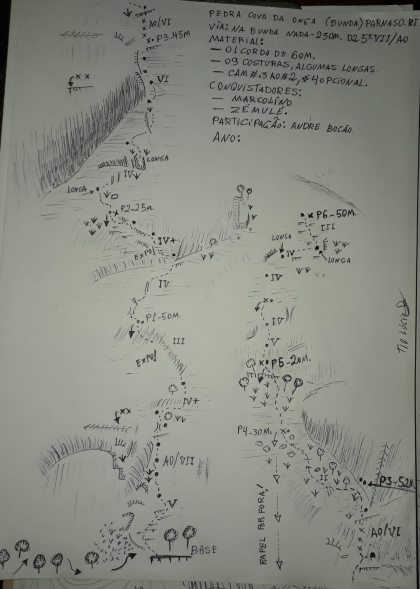 PEDRA COVA DA ONÇA (BUNDA) PARNASO.RJ
VIA: NA BUNDA NADA-250M. D2 5º VII/A0
MATERIAL:
— 01 CORDA DE 60M.
— 09 COSTURAS, ALGUMAS LONGAS.
— CAM #.3 AO #2, #4 OPCIONAL.
CONQUISTADORES:
— MARCOLINO
— ZÉMULÉ.
PARTICIPAÇÃO: ANDRE BOCÃO.
ANO:
A0/VI
P3-45M
VI
LONGA
IV
LONGA
P2-25M
IV+
EXPO!
IV
P1-50M.
III
EXPO!
IV+
A0/VII
V
BASE
P6-50M.
III
LONGA
IV
LONGA
IV
IV
V
P5-20M.
P4-30M.
II
P3-52M
A0/VI
RAPEL POR FORA!